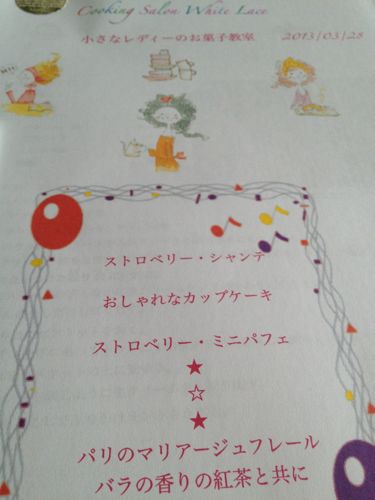 Cooking Salon White Lace
小さなレディーのお菓子教室 2013/03/28
ストロベリー・シャンテ
おしゃれなカップケーキ
ストロベリー・ミニパフェ
★
☆
★
パリのマリアージュフレール
バラの香りの紅茶と共に